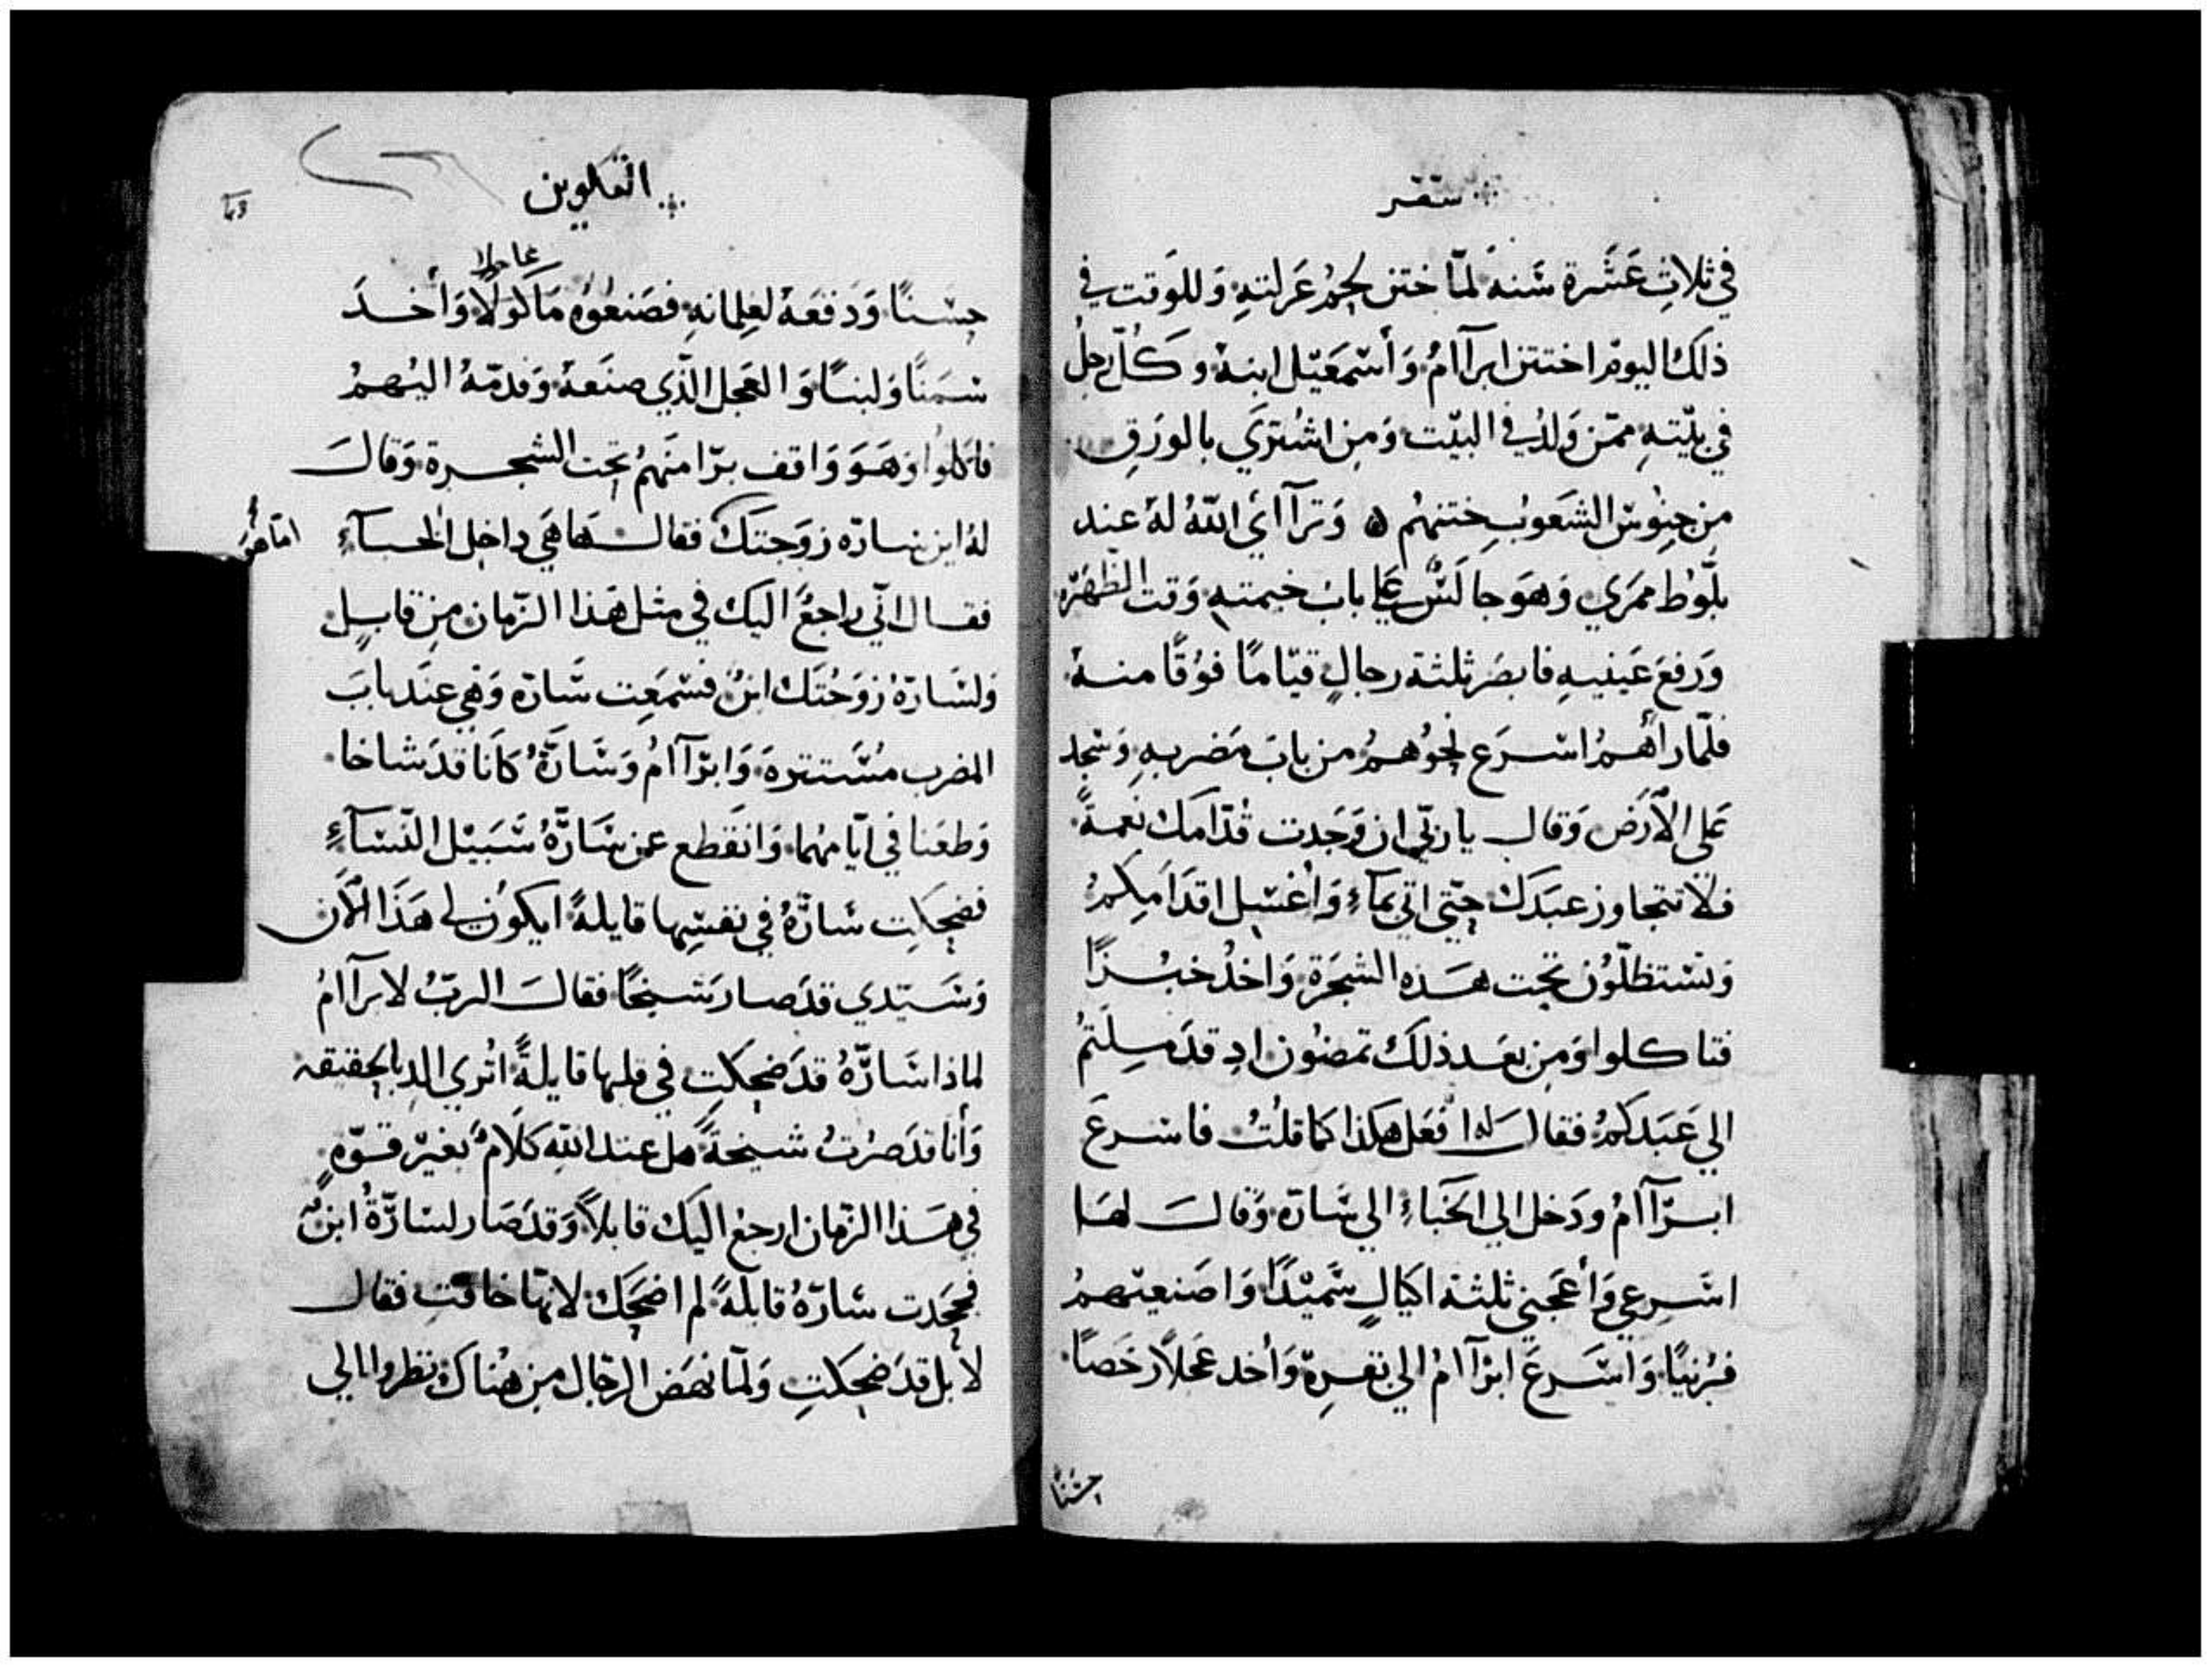 سفر
في ثلاثِ عَشَرة سَنه لمّا ختن لحمُ عَرلتهِ وَللوَقت في
ذلكَ اليومَ اختتن ابرآامُ وَأسْمَعَيْل ابنهُ وكَلّ رجل
في بيْتهِ ممّن وَلدُ في البيْت وَمن اشُتريَ بالورَقِ
من جنوسْ الشعَوبِ ختنهُم ه وَترآاىَ اللهُ لهُ عند
بلّوط ممَري وَهوَ جالسٌ علي بابَ خيمتهِ وَقت الظهَرَه
وَرفعَ عَينيهِ فابصَر ثلثة رجالٍ قيّامًا فوُقًا منهُ
فلمّا رأهُمُ اسْرَع نحوُهمُ من بابَ مَضربهِ وَسْجد
عَلي الأرَض وَقال يا ربّي ان وَجَدت قدّامَك نعمةً
فلا تتجاوز عبَدَك حتّي اتي بمآءٍ وَأغسْل اقدَامِكمُ
وَتسْتظلّوُن تحت هَذه الشجَرة وَاخذُ خبْزًا
فتاكلوا وَمِن بعَد ذلكَ تمضوُن اد قدَ مِلتمُ
الي عَبَدكمُ فقالَ له افعَل هكذا كَا قلتُ فاسْرعَ
ابرّآامُ ودَخل الي الخَباءِ الي سَارّه وَقالَ لهَا
اسَرعي وَأعَجني ثلثة اكيالٍ سَميْدًا وَاصَنعيْهمُ
فرْنيًا وَاسَرعَ ابرآامُ الي بقرِهِ وَأخد عَجلاً رخَصًا
حسْنًا
التكوين
حسْنًا وَدَفعَهُ لغِلمانهِ فصَنعُوُه مَاكوَلًا وَأخدَ
عاجلا
سَمَنًا وَلبنًا وَالعَجل الّذي صنَعهُ وَقدمّهُ اليْهمُ
فاكلوُا وَهَوَ وَاقف برّا منَهمُ تحت الشجَرة وَقالَ
لهُ اين سارّه زوَجتَكَ فقالَ هَاهيَ داخل الخبآءِ
امّا هو
فقال انّي راجعُ اليك في مثل هَذا الزّمان من قابلٍ
وَلسَارّهُ زوَجُتَك ابنٌ فسْمعَت سَارّه وَهي عندَ بابَ
المضرب مُسَتترةَ وَابرّآامُ وَسَارّهُ كانَا قدَ شاخا
وَطعَنا في ايّامهُما وَانقَطع عن سَارّهُ سَبَيْل النّسآءِ
فضحكَت سَارّهُ في نفسِها قايلةً ايكوُن لي هَذا الاَن
وَسَيّدي قدَ صار شيخًا فقالَ الربّ لابرآامُ
لماذا سَارّهُ قدَ ضحكت في قلبها قايلةً اتُري الد بالحقيقه
وَأنا قدَ صرْتُ شيخةً هل عند اللهِ كلَامٌ بغيْر قوّهٍ
في هَذا الزّمان ارجعُ اليك قابلاً وَقدَ صَار لسارّةُ ابنٌ
فجحَدت سَارّهُ قايلةً لم اضحَك لانهّا خافت فقال
لا بل قدَ ضحكتِ وَلمّا نهَض الرجّال من هنُاك نظروا الي